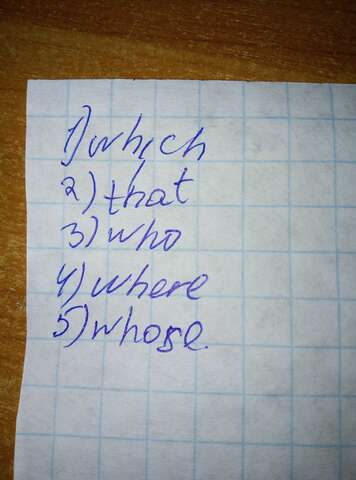 1) which
2) that
3) who
4) where
5) whose.